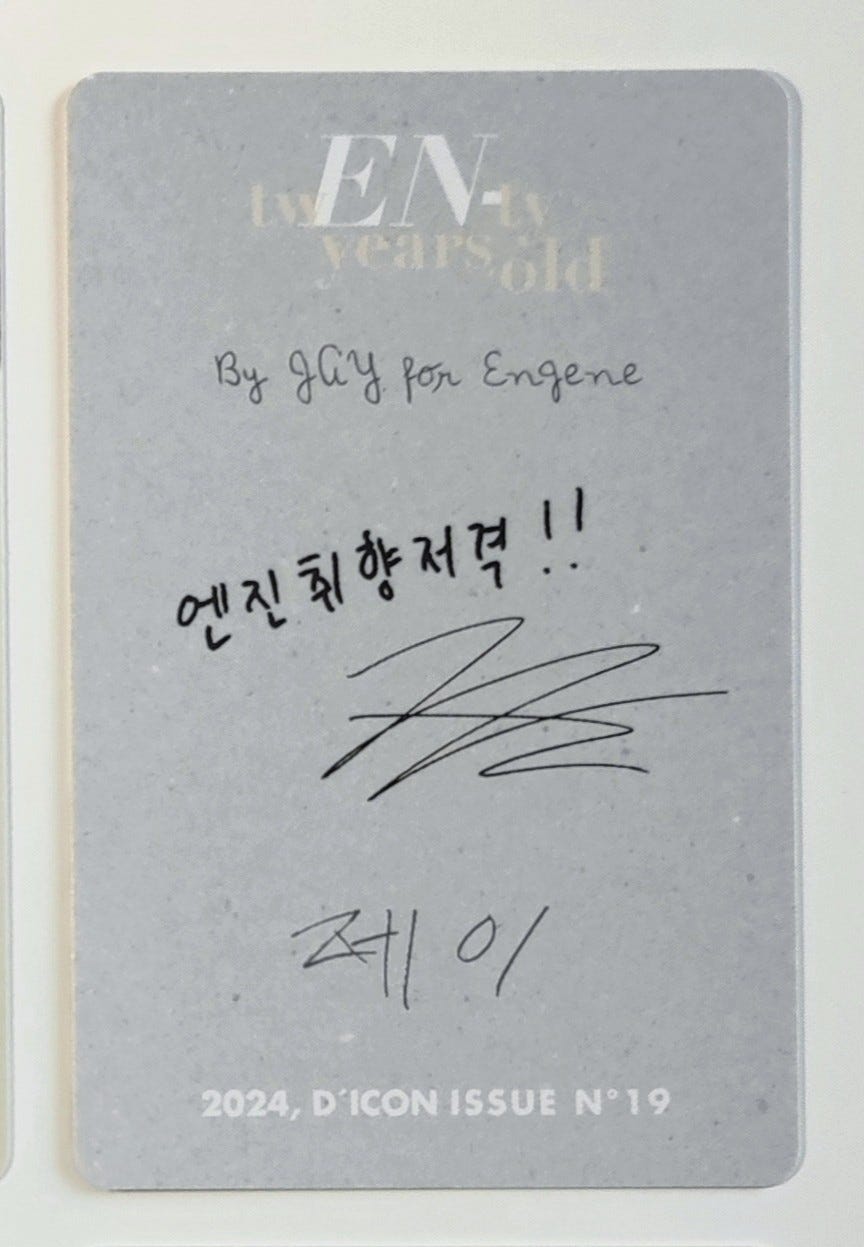 twEN-ty
years old
By JAY for Engene
엔진 취향저격!!
제이
2024, D'ICON ISSUE N°19